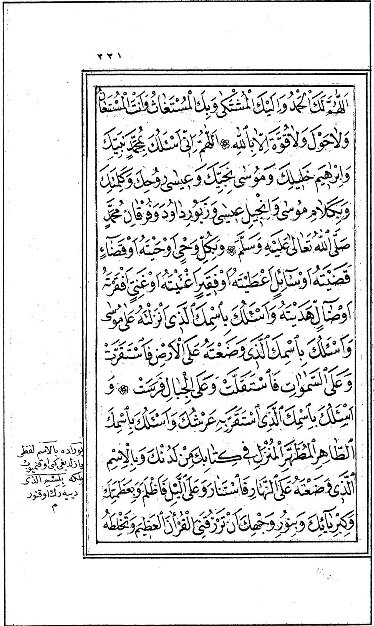 ٢٢١
اللهم لك الحمد واليك المشتكى وبك المستغاث وانت المستعان
ولاحول ولاقوة الا بالله اللهم انى اسئلك بمحمد نبيك
وابرهيم خليلك وموسى نجيك وعيسى روحك وكلمتك
وبكلام موسى وانجيل عيسى وزبور داود وفرقان محمد
صلى الله تعالى عليه وسلم وبكل وحى اوحيته اوقضاء
قضيته اوسائل اعطيته اوفقير اغنيته اوغنى افقرته
اوضال هديته واسئلك باسمك الذى انزلته على موسى
واسئلك باسمك الذى وضعته على الارض فاستقرت
وعلى السموات فاستقلت وعلى الجبال فرست و
اسئلك باسمك الذى استقر به عرشك واسئلك باسمك
الطاهر المطهر المنزل فى كتابك من لدنك وبالاسم
الذى وضعته على النهار فاستنار وعلى الليل فاظلم وبعظمتك
وكبريائك وبنور وجهك ان ترزقنى القرآن العظيم وتخلطه
بالاسم لفظ
الذى
م